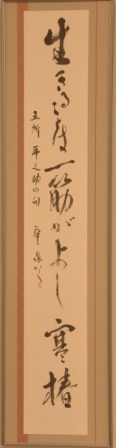 生きる意一筋がよし寒椿
五所 平之助の句